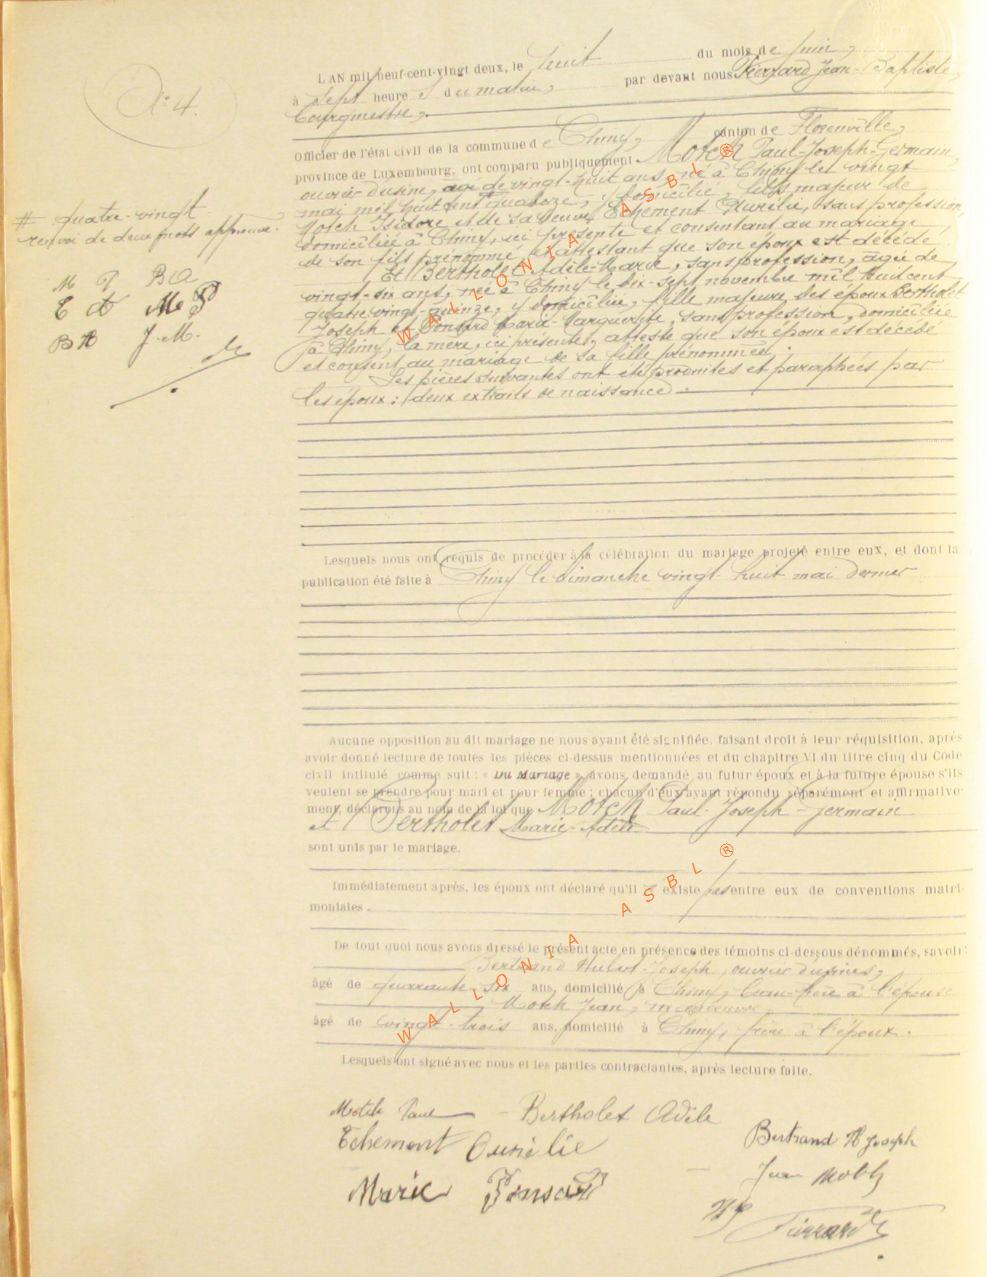 N° 4.
L'AN mil neuf-cent-vingt deux, le huit du mois de juin,
à sept heures du matin, par devant nous Pierrard Jean-Baptiste,
Bourgmestre,
Officier de l'état civil de la commune de Chiny, canton de Florenville,
province de Luxembourg, ont comparu publiquement Motch Paul-Joseph-Germain,
ouvrier d'usine, âgé de vingt-huit ans, né à Chiny le vingt
mai mil huit cent quatorze, y domicilié, fils majeur de
Motch Isidore et de sa veuve Echement Aurélie, sans profession,
domiciliée à Chiny, ici présente et consentant au mariage
de son fils prénommé et attestant que son époux est décédé
Et Bertholet Adèle-Marie, sans profession, âgée de
vingt-six ans, née à Chiny le dix-sept novembre mil huit cent
quatre vingt-quinze, y domiciliée, fille majeure des époux Bertholet
Joseph et Ponsard Marie-Marguerite, sans profession, domiciliée
à Chiny, la mère, ici présente, atteste que son époux est décédé
et consent au mariage de sa fille prénommée.
Les pièces suivantes ont été produites et paraphées par
les époux : deux extraits de naissance
# quatre-vingt
renvoi de deux mots approuvé.
M P B A
E A M P
B H J. M.
Lesquels nous ont requis de procéder à la célébration du mariage projeté entre eux, et dont la
publication été faite à Chiny le dimanche vingt-huit mai dernier
Aucune opposition au dit mariage ne nous ayant été signifiée, faisant droit à leur réquisition, après
avoir donné lecture de toutes les pièces ci-dessus mentionnées et du chapitre VI du titre cinq du Code
civil intitulé comme suit : « Du Mariage », avons demandé au futur époux et à la future épouse s'ils
veulent se prendre pour mari et pour femme ; chacun d'eux ayant répondu séparément et affirmative-
ment, déclarons au nom de la loi que Motch Paul-Joseph-Germain
et Bertholet Marie-Adèle
sont unis par le mariage.
Immédiatement après, les époux ont déclaré qu'il existe pas entre eux de conventions matri-
moniales.
De tout quoi nous avons dressé le présent acte en présence des témoins ci-dessous dénommés, savoir:
Bertrand Hubert-Joseph, ouvrier d'usines,
âgé de quarante six ans, domicilié à Chiny, beau-frère à l'épouse
Motch Jean,
âgé de vingt-trois ans, domicilié à Chiny, frère à l'époux.
Lesquels ont signé avec nous et les parties contractantes, après lecture faite.
Motch Paul Bertholet Adèle
Echement Aurélie Bertrand H Joseph
Marie Ponsard Jean Motch
Pierrard
WALLONIA ASBL ®
WALLONIA ASBL ®